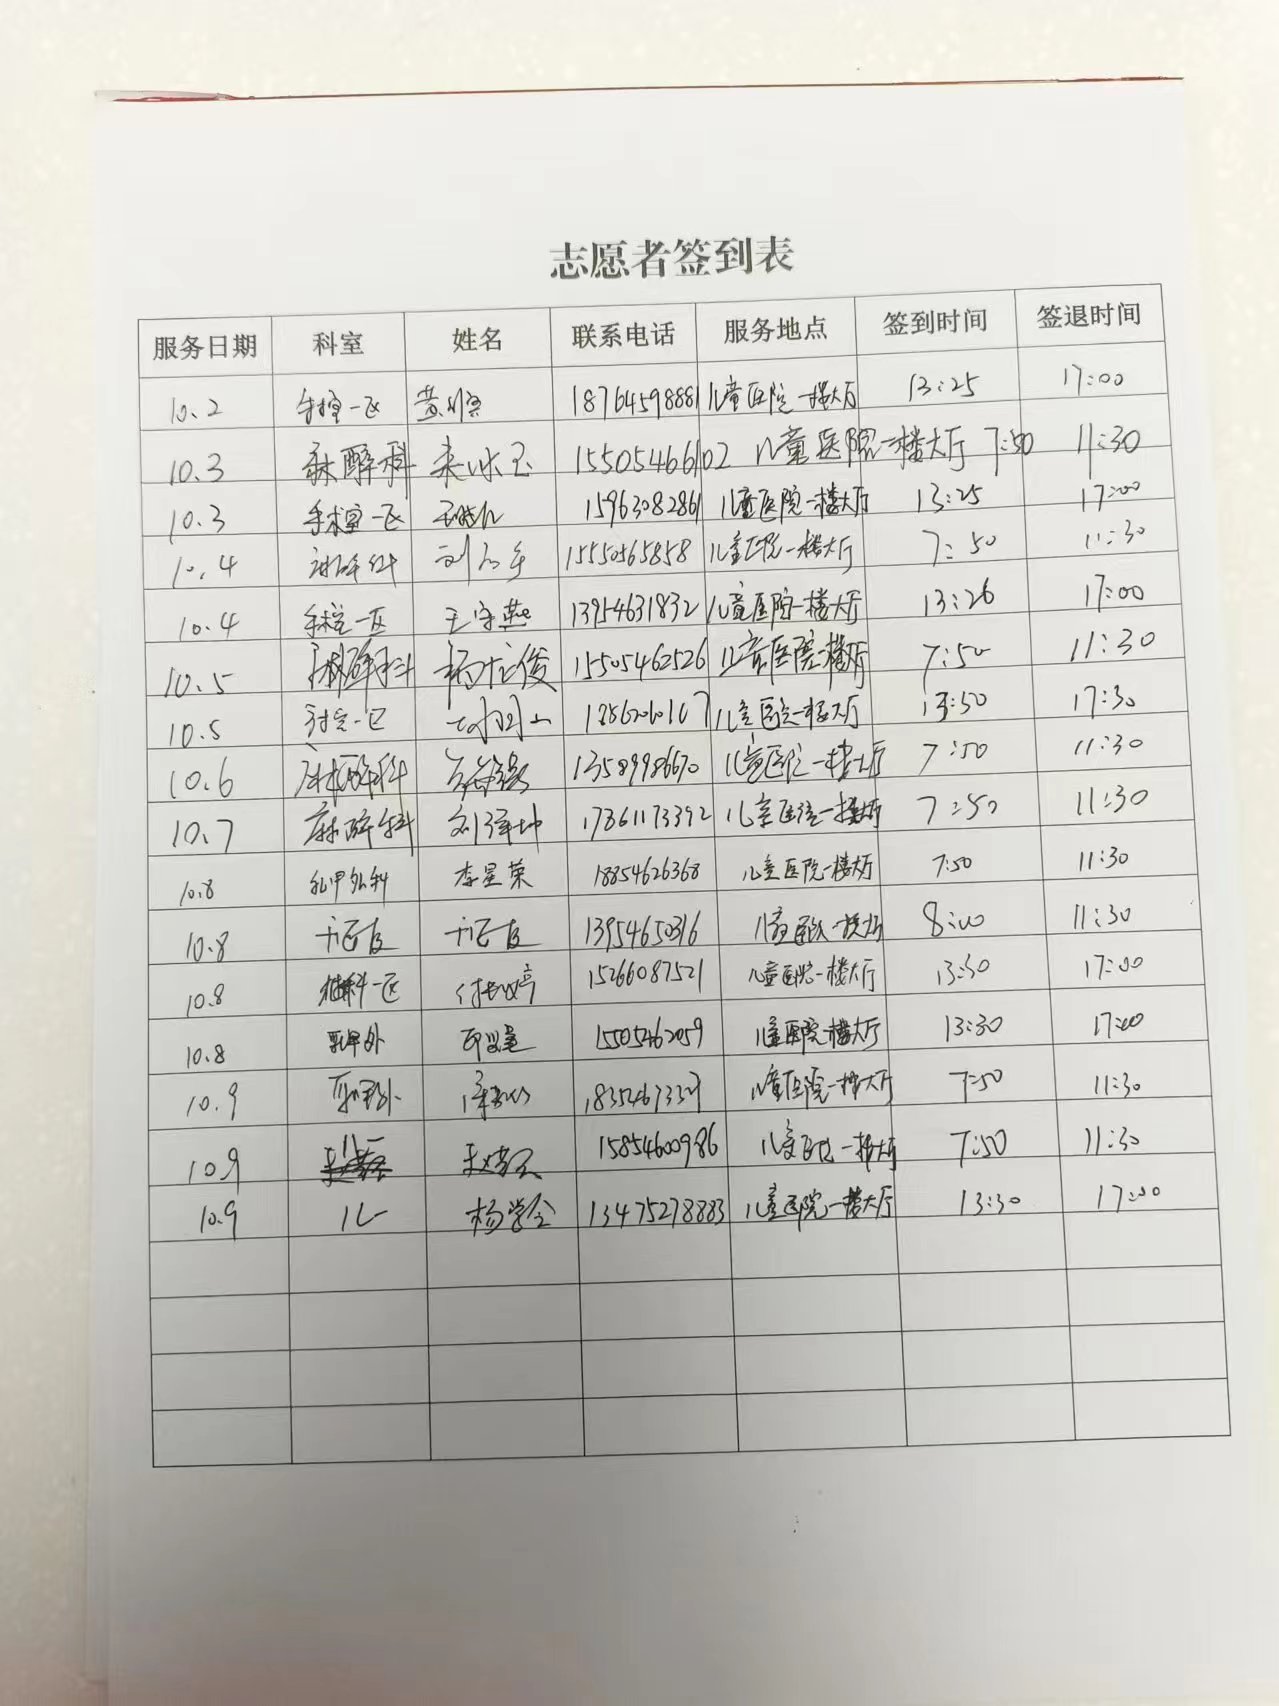 志愿者签到表
服务日期 科室 姓名 联系电话 服务地点 签到时间 签退时间
10.2 手术室一区 18764598881 儿童医院一楼大厅 13:25 17:00
10.3 麻醉科 来冰玉 15505466102 儿童医院一楼大厅 7:50 11:30
10.3 手术室一区 15963082861 儿童医院一楼大厅 13:25 17:00
10.4 麻醉科 15550565858 儿童医院一楼大厅 7:50 11:30
10.4 手术室一区 王宇燕 13954631832 儿童医院一楼大厅 13:26 17:00
10.5 麻醉科 杨龙俊 15505462526 儿童医院一楼大厅 7:50 11:30
10.5 手术室一区 儿童医院一楼大厅 13:50 17:30
10.6 麻醉科 13589986670 儿童医院一楼大厅 7:50 11:30
10.7 麻醉科 刘泽坤 17861173392 儿童医院一楼大厅 7:50 11:30
10.8 乳甲外科 李星荣 18854626368 儿童医院一楼大厅 7:50 11:30
10.8 13954650316 儿童医院一楼大厅 8:00 11:30
10.8 付婷 15266087521 儿童医院一楼大厅 13:30 17:00
10.8 乳甲外 15505462059 儿童医院一楼大厅 13:30 17:00
10.9 乳甲外 儿童医院一楼大厅 7:50 11:30
10.9 15854600986 儿童医院一楼大厅 7:50 11:30
10.9 儿一 杨学全 13475278883 儿童医院一楼大厅 13:30 17:00